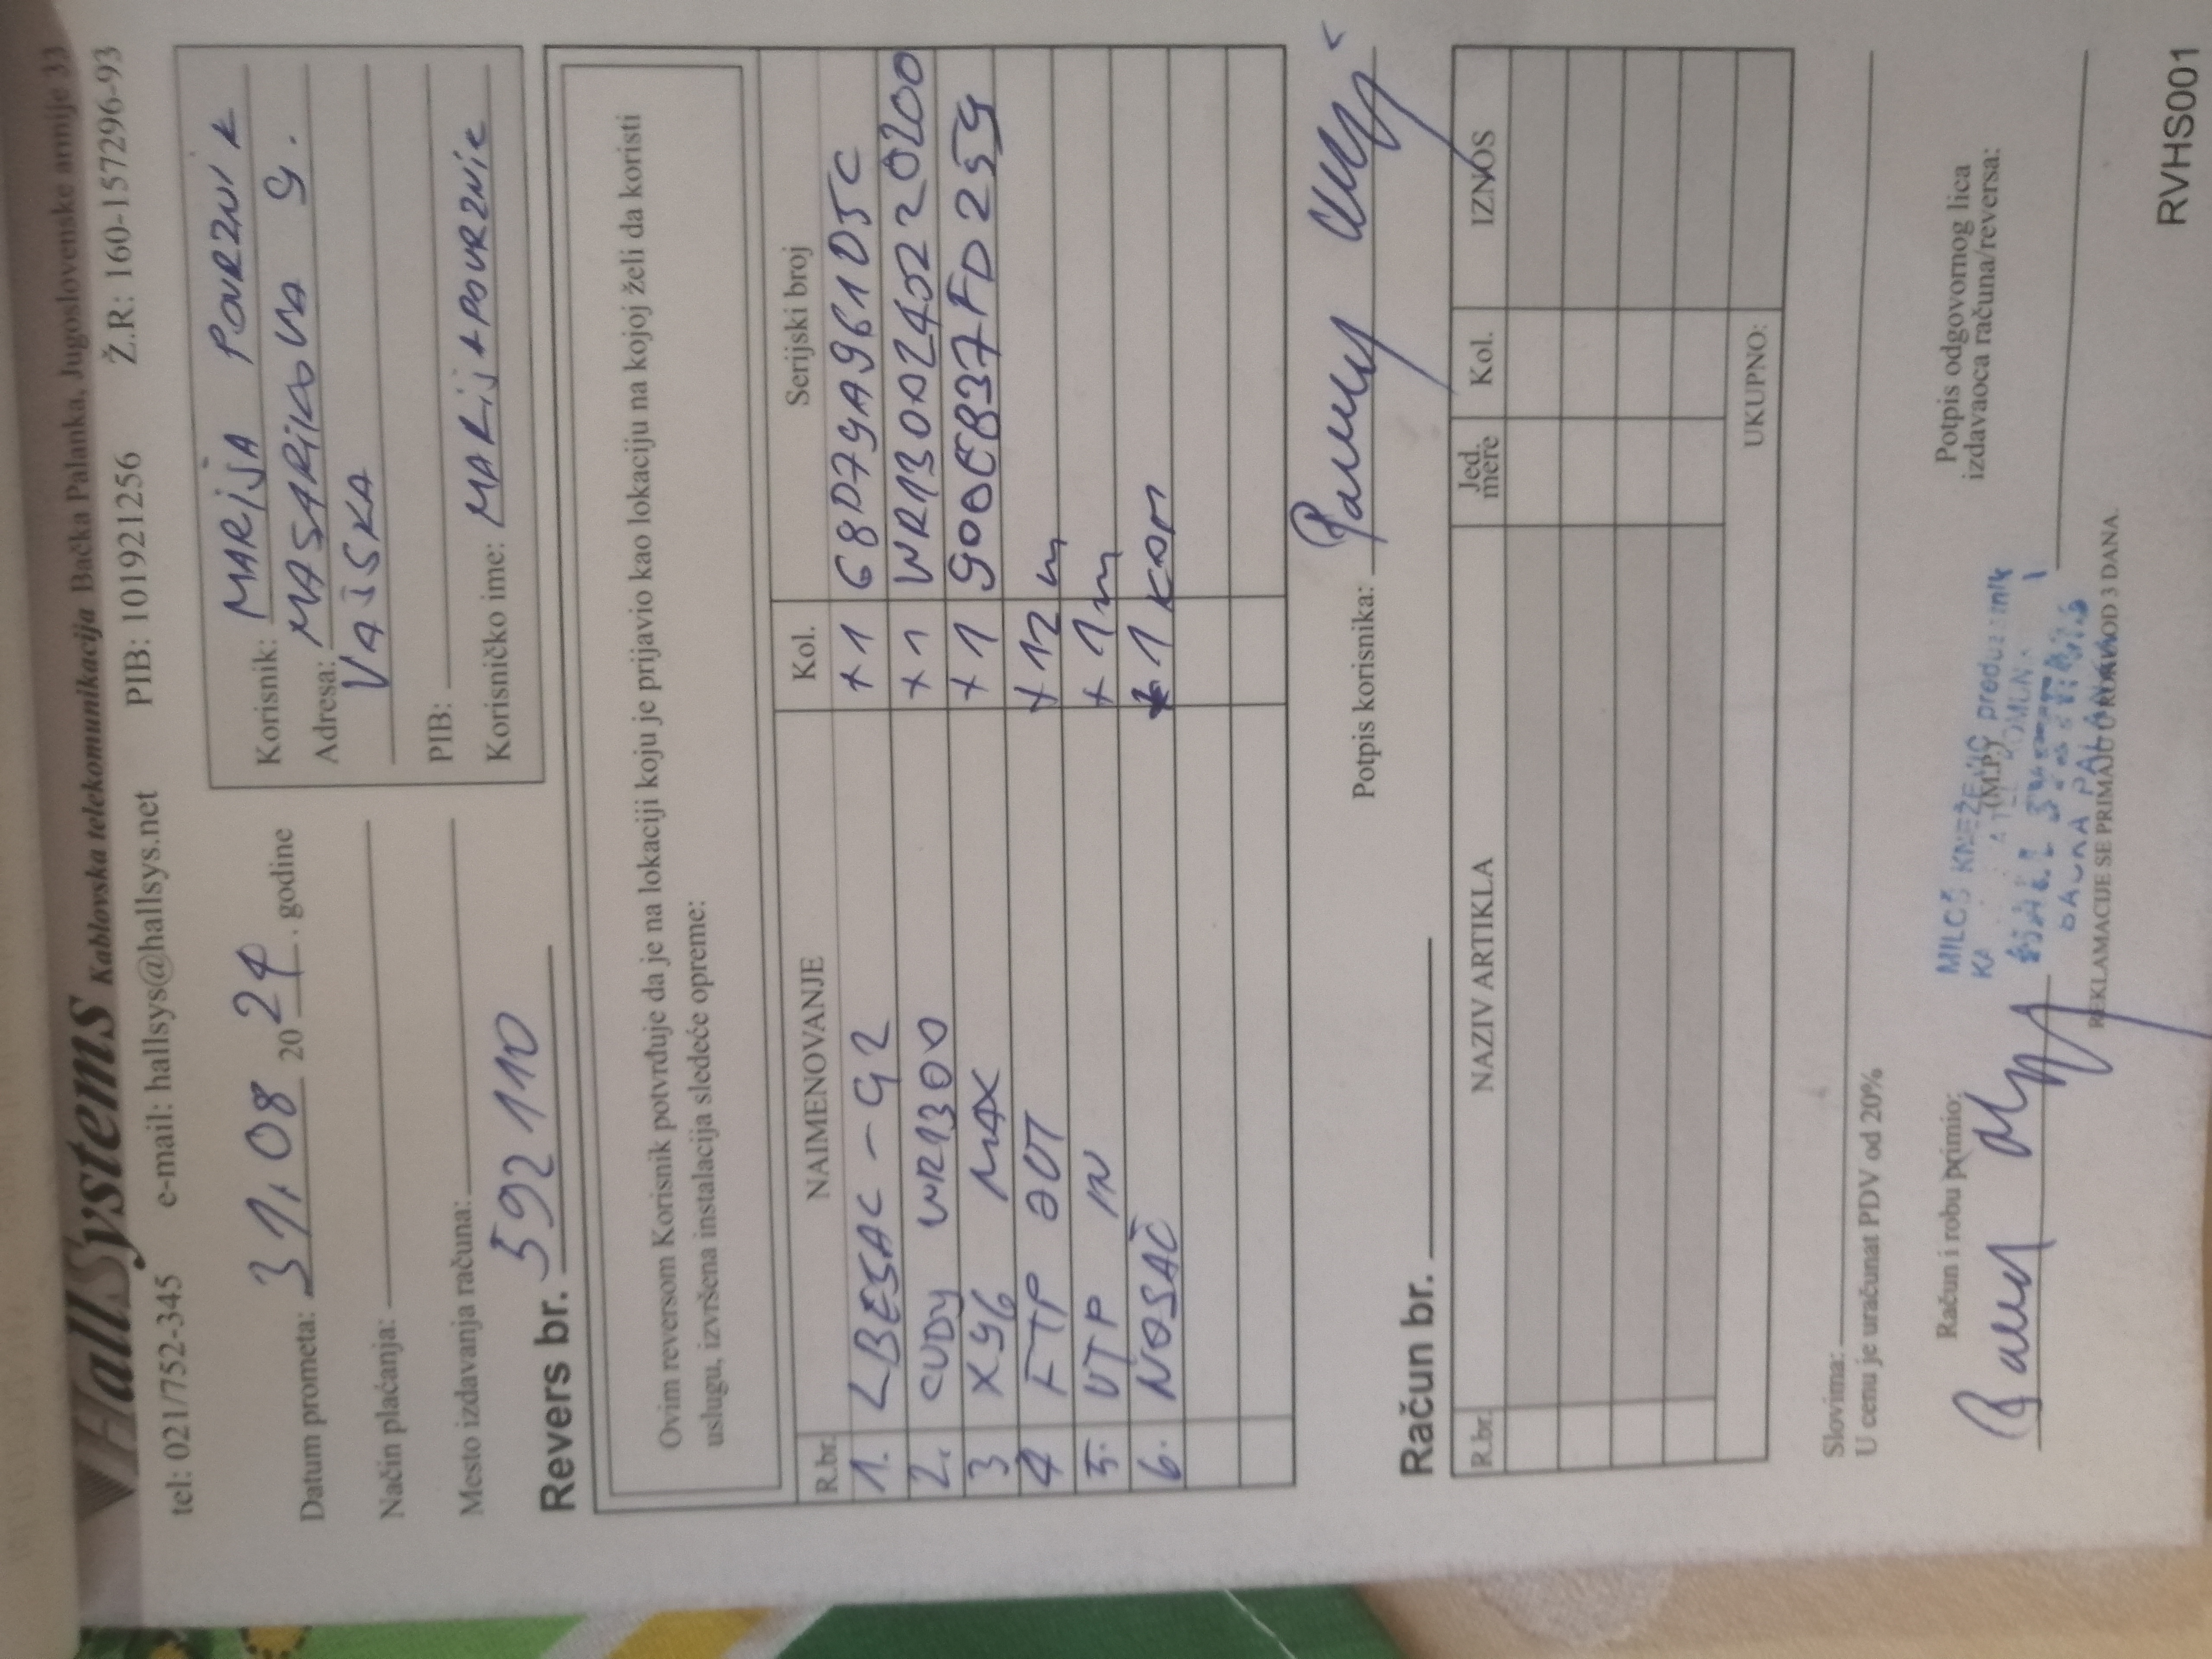 HallSystems Kablovska telekomunikacija Bačka Palanka, Jugoslovenske armije 33
tel: 021/752-345 e-mail: hallsys@hallsys.net PIB: 101921256 Ž.R: 160-157296-93
Datum prometa: 31.08 2024. godine
Način plaćanja:
Mesto izdavanja računa:
Korisnik: MARIJA POVRZNIK
Adresa: MASARIKOVA 9.
VAJSKA
PIB:
Korisničko ime: MARIJAPOVRZNIK
Revers br. 592110
Ovim reversom Korisnik potvrđuje da je na lokaciji koju je prijavio kao lokaciju na kojoj želi da koristi
uslugu, izvršena instalacija sledeće opreme:
R.br. NAIMENOVANJE Kol. Serijski broj
1. LBE5AC-G2 +1 68D79A961D5C
2. CUDY WR1300 +1 WR1300240220200
3 X96 MAX +1 900EB37FD259
4 FTP OUT +12m
5. UTP IN +1m
6. NOSAČ 1 KOM
Potpis korisnika:
Račun br.
R.br. NAZIV ARTIKLA Jed. mere Kol. IZNOS
UKUPNO:
Slovima:
U cenu je uračunat PDV od 20%
Račun i robu primio:
(M.P.)
Potpis odgovornog lica
izdavaoca računa/reversa:
MILOŠ KNEŽEVIĆ
BAČKA PALANKA
REKLAMACIJE SE PRIMAJU U ROKU OD 3 DANA.
RVHS001